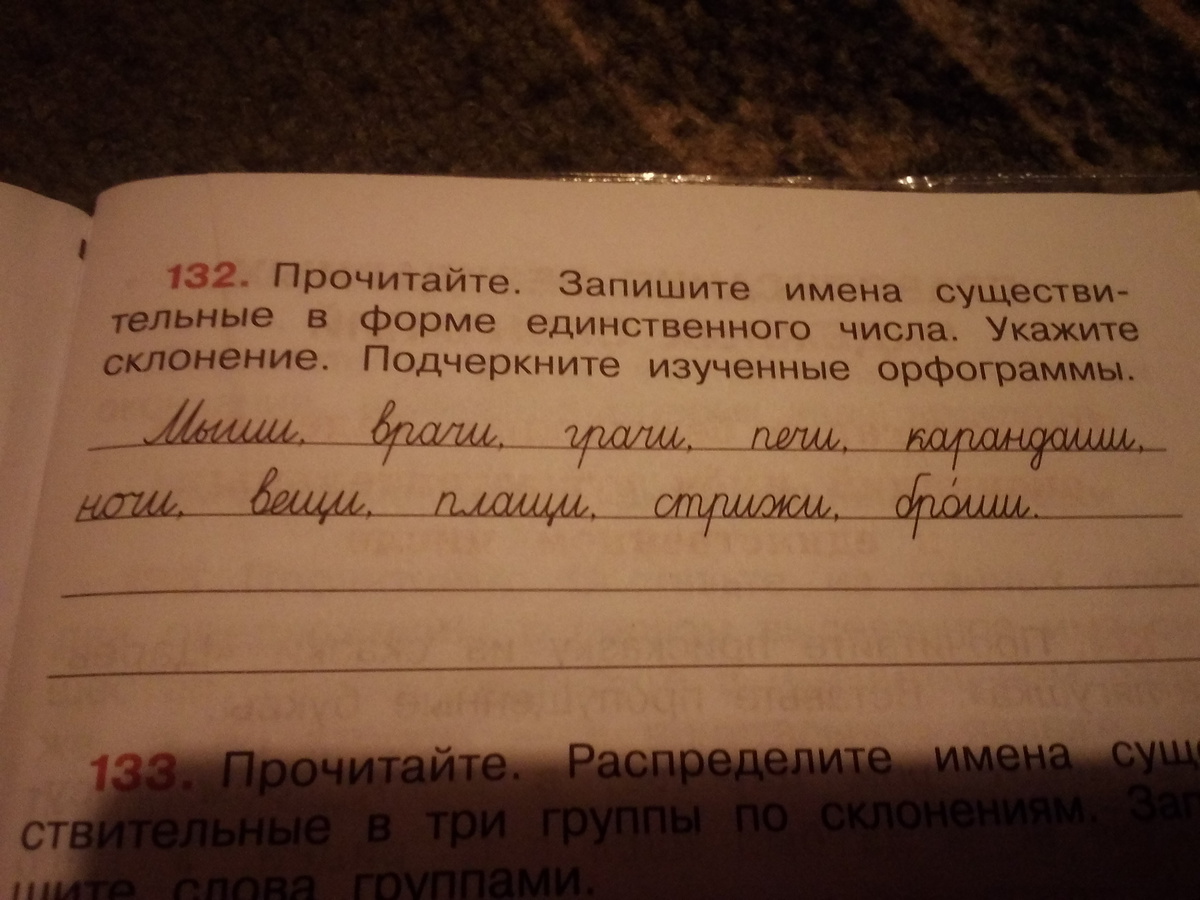 132. Прочитайте. Запишите имена существи-
тельные в форме единственного числа. Укажите
склонение. Подчеркните изученные орфограммы.
Мыши, врачи, грачи, печи, карандаши,
ночи, вещи, плащи, стрижи, бро́ши.
133. Прочитайте. Распределите имена суще
ствительные в три группы по склонениям. Зап
шите слова группами.